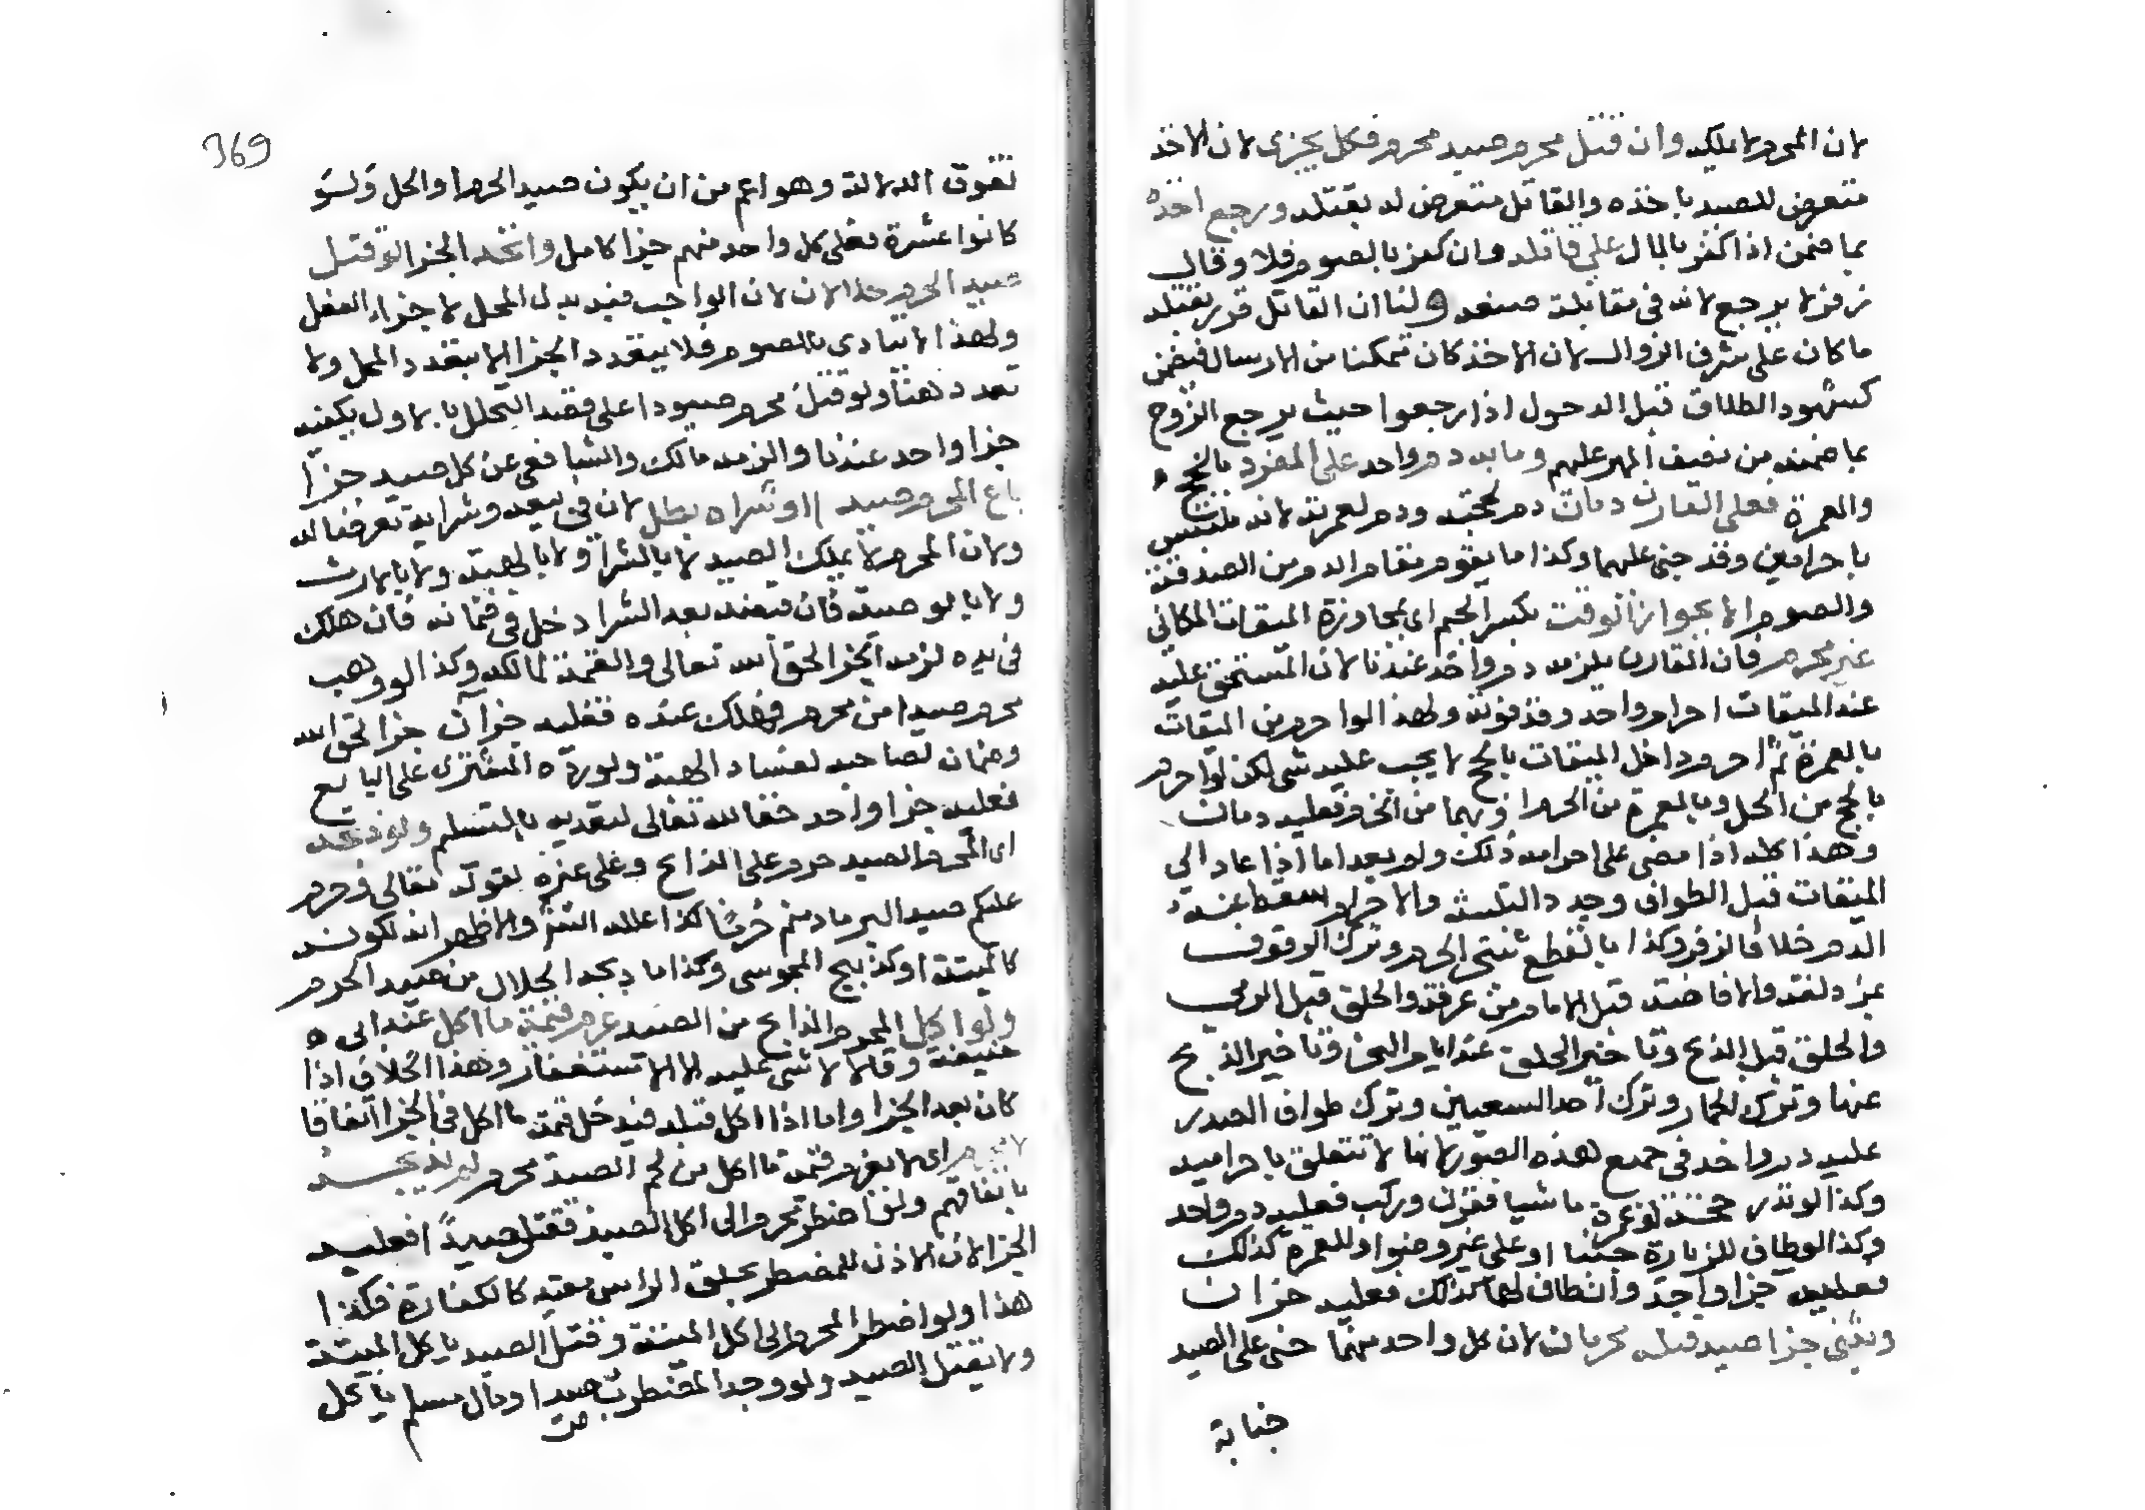 لان المحرم لا يملكه وان قتل محرم صيد محرم فكل يجزي لان الاخذ
متعرض للصيد باخذه والقاتل متعرض له بقتله ورجع اخذه
بما ضمن اذا كفر بالمال على قاتله وان كفر بالصوم فلا وقال
زفر لا يرجع لانه في مقابلة صنعه ولنا ان القاتل قرر بقتله
ما كان على شرف الزوال لان الاخذ كان متمكنا من الارسال فيضمن
كشهود الطلاق قبل الدخول اذا رجعوا حيث يرجع الزوج
بما ضمنه من نصف المهر عليهم وما به دم واحد على المفرد بالحج
والعمرة فعلى القارن دمان دم لحجته ودم لعمرته لانه متلبس
باحرامين وقد جنى عليهما وكذا ما يقوم مقام الدم من الصدقة
والصوم الا بجواز الوقت بكسر الجيم اي بمجاوزة الميقات المكاني
غير محرم فان القارن يلزمه دم واحد عندنا لان المستحق عليه
عند الميقات احرام واحد وقد فوته ولهذا لو احرم من الميقات
بالعمرة ثم احرم داخل الميقات بالحج لا يجب عليه شي لكن لو احرم
بالحج من الحل وبالعمرة من الحرم او بهما من الحرم فعليه دمان
وهذا كله اذا مضى على احرامه ذلك ولم يعد اما اذا عاد الى
الميقات قبل الطواف وجدد التلبية والاحرام سقط عنه
الدم خلافا لزفر وكذا بالقطع شجر الحرم وترك الوقوف
بمزدلفة والافاضة قبل الامام من عرفة والحلق قبل الرمي
والحلق قبل الذبح وتاخير الحلق عند ايام النحر وتاخير الذبح
عنها وترك الجمار وترك احد السعيين وترك طواف الصدر
عليه دم واحد في جميع هذه الصور لانها لا تتعلق باحراميه
وكذا لو نذر حجة او عمرة ماشيا فقرن وركب فعليه دم واحد
وكذا لو طاف للزيارة جنبا او على غير وضوء او للعمرة كذلك
فعليه جزا واحد وان طاف لهما كذلك فعليه جزاان
ويثنى جزا صيد قتله محرمان لان كل واحد منهما جنى على الصيد
جناية
369
تفوق الدلالة وهو اعم من ان يكون صيد الحرم او الحل ولو
كانوا عشرة فعلى كل واحد منهم جزا كامل واتحد الجزا لو قتل
صيد الحرم حلالان لان الواجب فيه بدل المحل لا جزاء الفعل
ولهذا لا يتادى بالصوم فلا يتعدد الجزا الا بتعدد المحل ولا
تعدد هنا ولو قتل محرم صيودا على قصد التحلل بالاول يكفيه
جزا واحد عندنا والزمه مالك والشافعي عن كل صيد جزا
باع المحرم صيدا او شراه بطل لان في بيعه وشرايه تعرضا له
ولان المحرم لا يملك الصيد لا بالشرا ولا بالهبة ولا بالارث
ولا بالوصية فان قبضه بعد الشرا دخل في ضمانه فان هلك
في يده لزمه الجزا لحق الله تعالى والقيمة لمالكه وكذا لو وهب
محرم صيدا من محرم فهلك عنده فعليه جزاان جزا لحق الله
وضمان لصاحبه لفساد الهبة ولو رده المشتري على البايع
فعليه جزا واحد حقا لله تعالى لتعديه بالتسليم ولو ذبحه
اى المحرم الصيد حرم على الذابح وعلى غيره لقوله تعالى وحرم
عليكم صيد البر ما دمتم حرما كذا علله الشر والاظهر انه لكونه
كالميتة او كذبيح المجوسى وكذا ما ذبحه الحلال من صيد الحرم
ولو اكل المحرم الذابح من الصيد غرم قيمة ما اكل عند ابى
حنيفة وقالا لا شى عليه الا الاستغفار وهذا الخلاف اذا
كان بعد الجزا واما اذا اكل قبله فيدخل قيمة ما اكل في الجزا اتفاقا
لا محرم اى لا يغرم قيمة ما اكل من لحم الصيد محرم لم يذبحه
باتفاقهم ولو اضطر محرم الى اكل الصيد فقتل صيدا فعليه
الجزا لان الاذن للمضطر بحلق الراس مقيد كالكفارة فكذا
هذا ولو اضطر المحرم الى اكل الميتة وقتل الصيد ياكل الميتة
ولا يقتل الصيد ولو وجد المضطر صيدا ومال مسلم ياكل